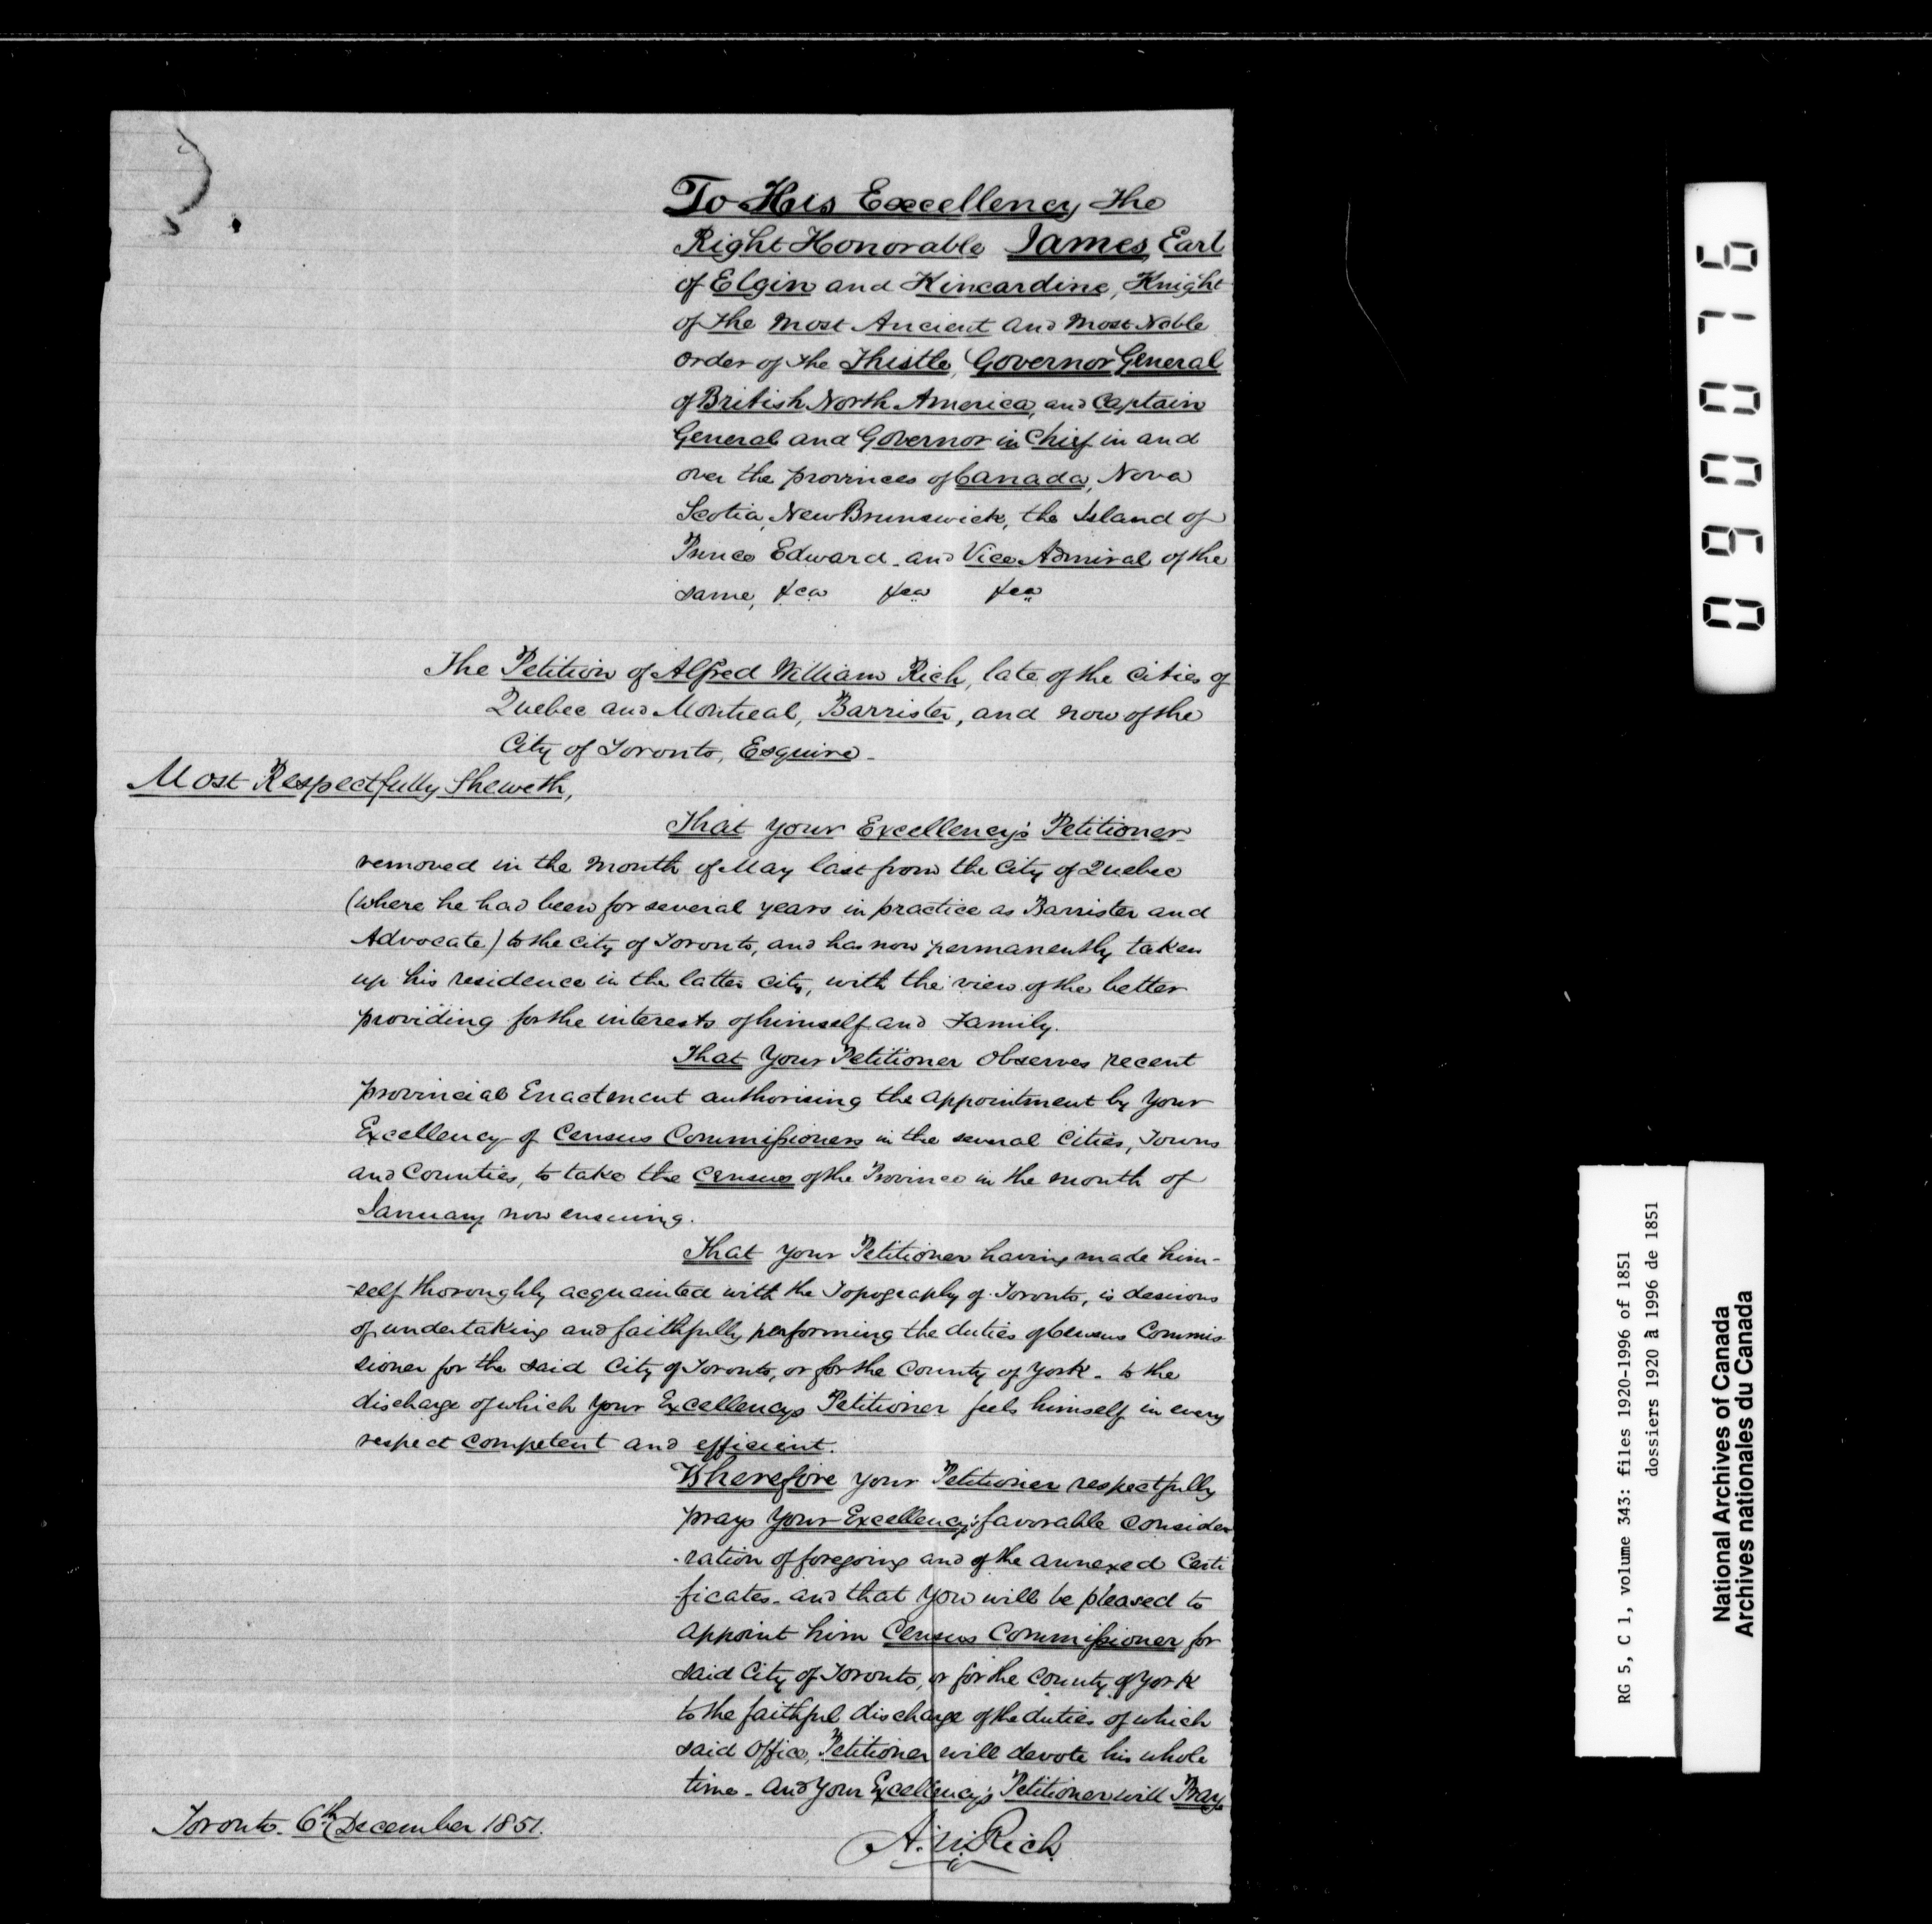 To His Excellency The
Right Honorable James, Earl
of Elgin and Kincardine, Knight
of the Most Ancient and Most Noble
Order of the Thistle, Governor General
of British North America, and Captain
General and Governor in Chief in and
over the provinces of Canada, Nova
Scotia, New Brunswick, the Island of
Prince Edward - and Vice Admiral of the
same, &ca &ca &ca
The Petition of Alfred William Rich, late of the Cities of
Quebec and Montreal, Barrister, and now of the
City of Toronto, Esquire -
Most Respectfully Sheweth,
That Your Excellency's Petitioner
removed in the Month of May last from the City of Quebec
(where he had been for several years in practice as Barrister and
Advocate) to the City of Toronto, and has now permanently taken
up his residence in the latter City, with the view of the better
providing for the interests of himself and Family.
That Your Petitioner observes recent
provincial Enactment authorising the appointment by Your
Excellency of Census Commissioners in the several Cities, Towns
and Counties, to take the Census of the Province in the month of
January now ensuing.
That Your Petitioner having made him-
-self thoroughly acquainted with the Topography of Toronto, is desirous
of undertaking and faithfully performing the duties of Census Commis
sioner for the said City of Toronto, or for the County of York - to the
discharge of which Your Excellencys Petitioner feels himself in every
respect competent and efficient.
Wherefore Your Petitioner respectfully
prays Your Excellency's favorable conside
-ration of foregoing and of the annexed Certi
ficates - and that you will be pleased to
appoint him Census Commissioner for
said City of Toronto, or for the County of York
to the faithful discharge of the duties of which
said Office, Petitioner will devote his whole
time - and Your Excellency's Petitioner will Pray
Toronto - 6th December 1851.
A. W. Rich
090076
RG 5, C 1, volume 343: files 1920-1996 of 1851
dossiers 1920 à 1996 de 1851
National Archives of Canada
Archives nationales du Canada